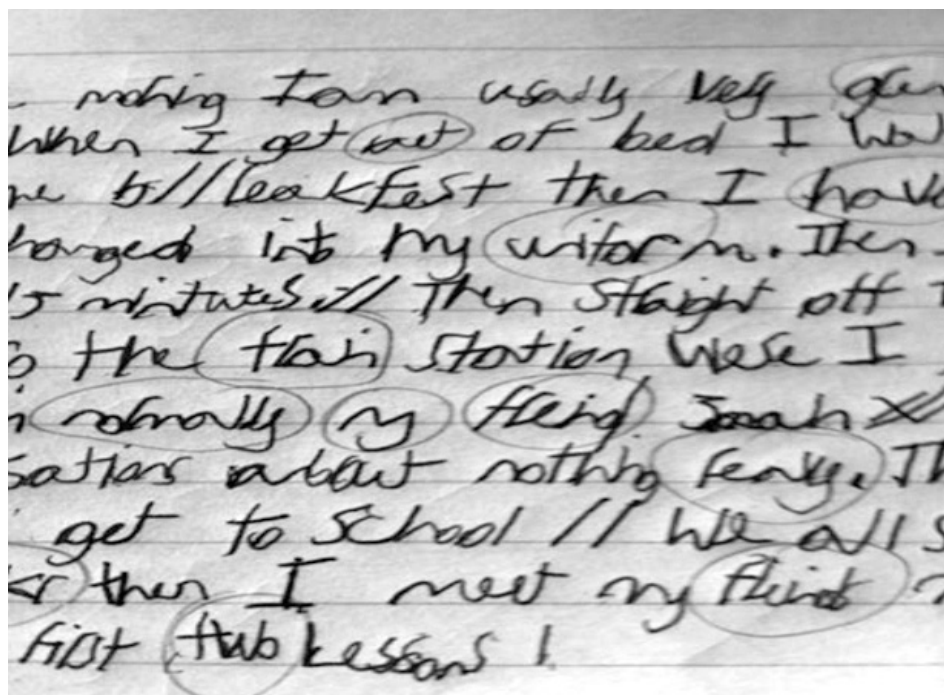 morning I am usually very
When I get out of bed I
breakfest then I have
changed into my uniform. Then
15 mintutes // Then straight off
the train station were I
normally my freind Jonah
sations about nothing realy. Th
get to school // We all s
then I meet my freind
first two Lessons